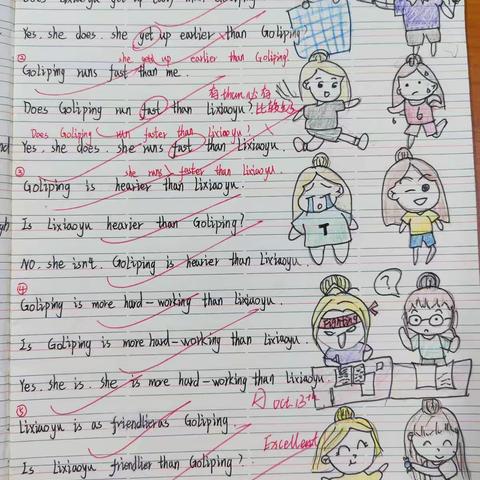 Yes, she does. she get up earlier than Goliping
she gets up earlier than Goliping?
②
Goliping runs fast than me.
有than必有
Does Goliping run fast than Lixiaoyu? 比较级
Does Goliping run faster than Lixiaoyu?
Yes, she does, she runs fast than Lixiaoyu.
she runs faster than Lixiaoyu.
③
Goliping is hearier than Lixiaoyu.
Is Lixiaoyu hearier than Goliping?
T
NO, she isn't. Goliping is hearier than Lixiaoyu.
④
Goliping is more hard-working than Lixiaoyu.
?
Is Goliping is more hard-working than Lixiaoyu.
Yes, she is. she is more hard-working than Lixiaoyu.
Oct. 13th
⑤
Lixiaoyu is as friendlieras Goliping.
Excellent
Is Lixiaoyu friendlier than Goliping?